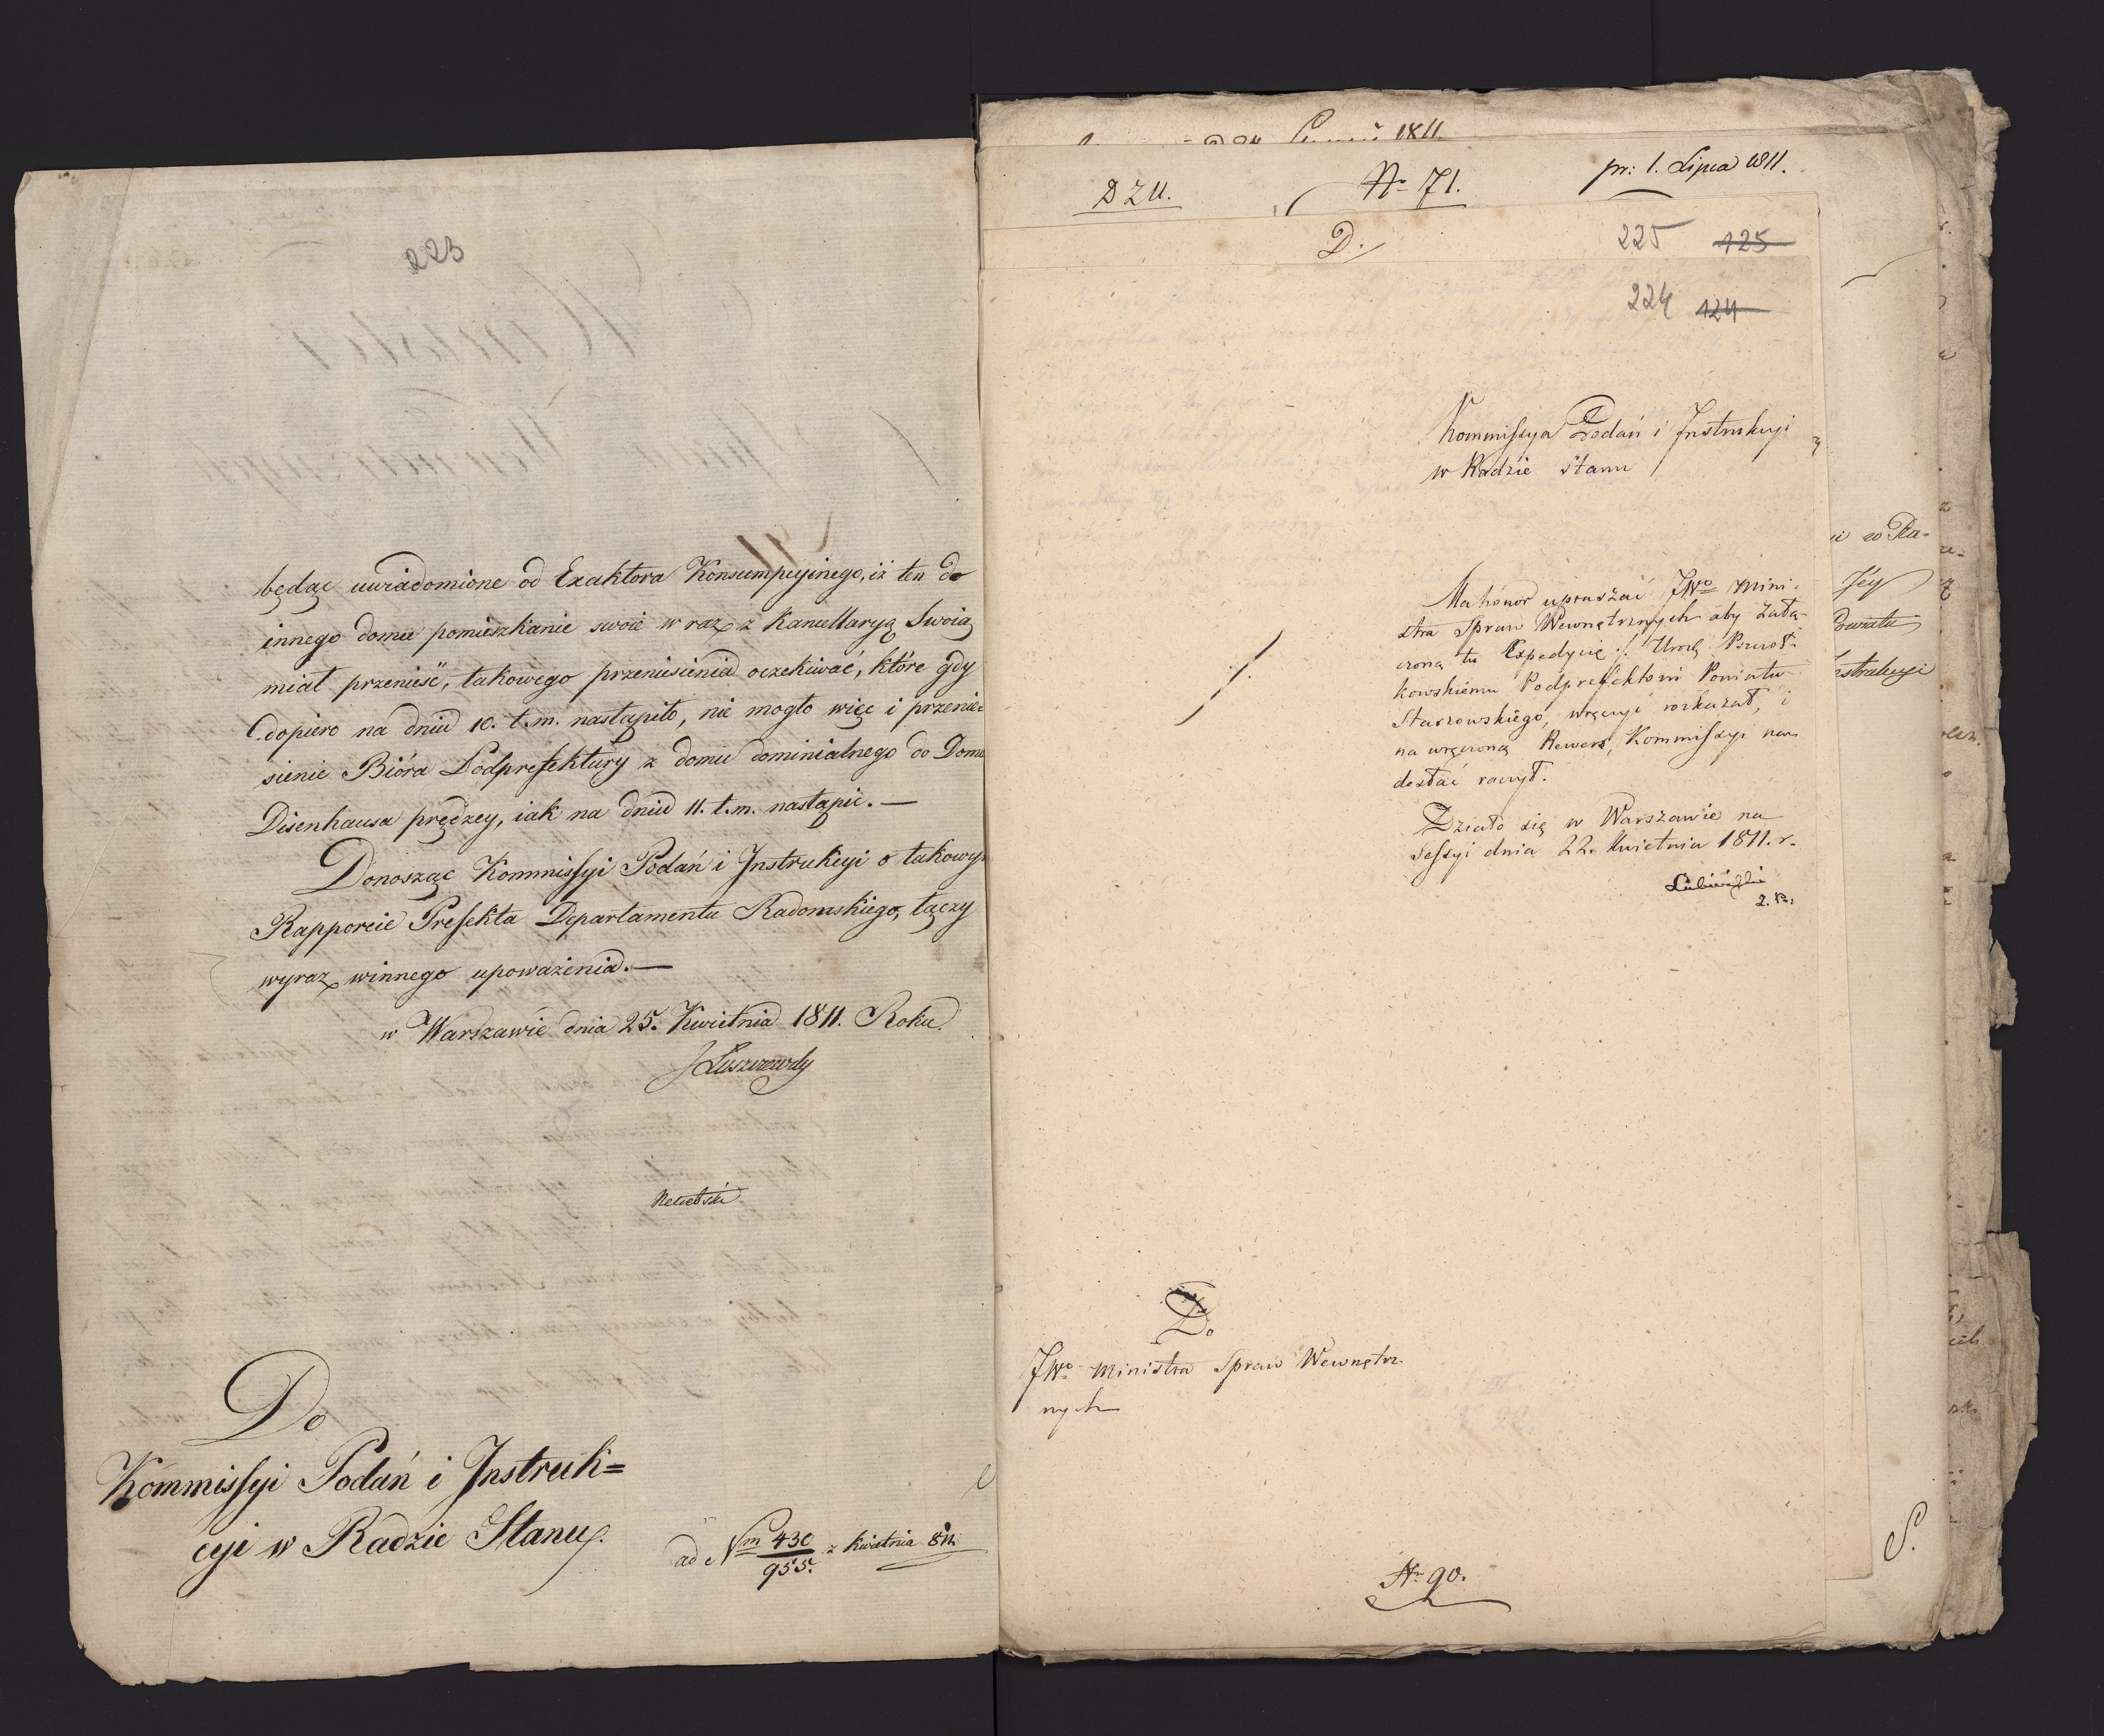 223
będąc uwiadomione od Exaktora Konsumpcyinego, iż ten do
innego domu pomieszkanie swoie wraz z Kancellaryą Swoią
miał przenieść, takowego przeniesienia oczekiwać, które gdy
dopiero na dniu 10. t. m. nastąpiło, nie mogło więc i przenie-
sienie Bióra Podprefektury z domu dominialnego do Domu
Disenhausa prędzey, iak na dniu 11. t. m. nastąpić. —
Donosząc Kommissyi Podań i Instrukcyi o takowym
Rapporcie Prefekta Departamentu Radomskiego, łączy
wyraz winnego upoważenia. —
w Warszawie dnia 25. Kwietnia 1811. Roku.
J Łuszczewski
Do
Kommissyi Podań i Instruk=
cyi w Radzie Stanu.
ad Nm 430/955. z kwietnia 811.
1811
DZU.
No 71.
pr: 1. Lipca 1811.
D.
225 125
224 124
Kommissya Podań i Instrukcyi
w Radzie Stanu
Ma honor upraszać JWo Mini-
stra Spraw Wewnętrznych aby załą-
czoną tu Expedycię Urodz.
kowskiemu Podprefektowi Powiatu
Staszowskiego, wręczyć rozkazał, i
na wręczoną Rewers, Kommissyi na-
desłać raczył.
Działo się w Warszawie na
Sessyi dnia 22. Kwietnia 1811. r.
Do
JWo Ministra Spraw Wewnętrz-
nych
Nr 90.
w Ra-
Jey
Powiatu
Instrukcyi
S.